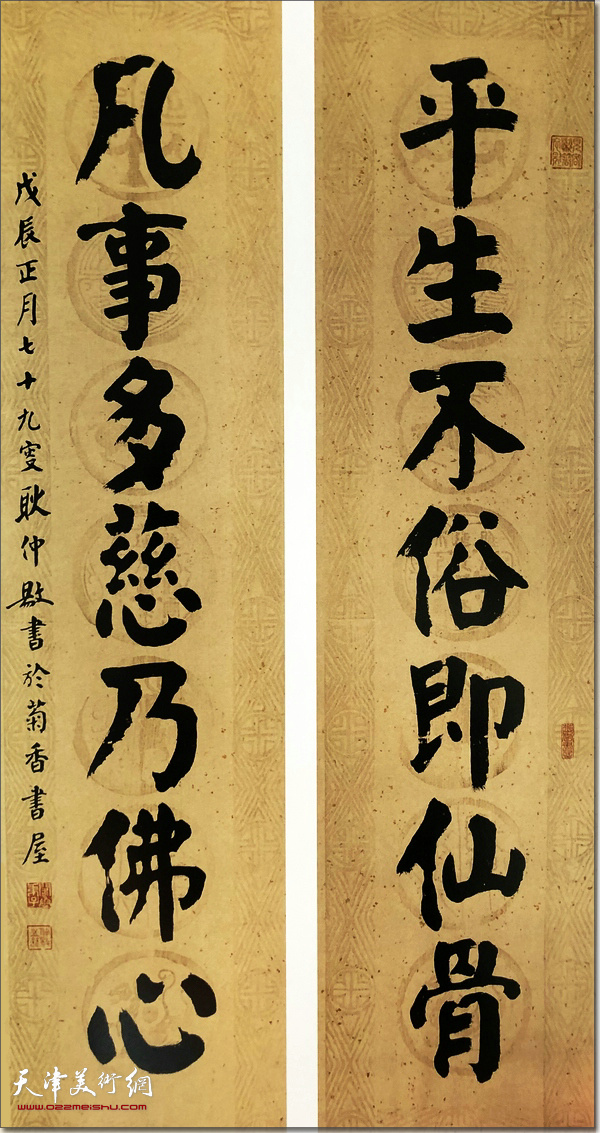 平生不俗即仙骨
凡事多慈乃佛心
戊辰正月七十九叟耿仲敭書於菊香書屋
天津美術網
www.022meishu.com